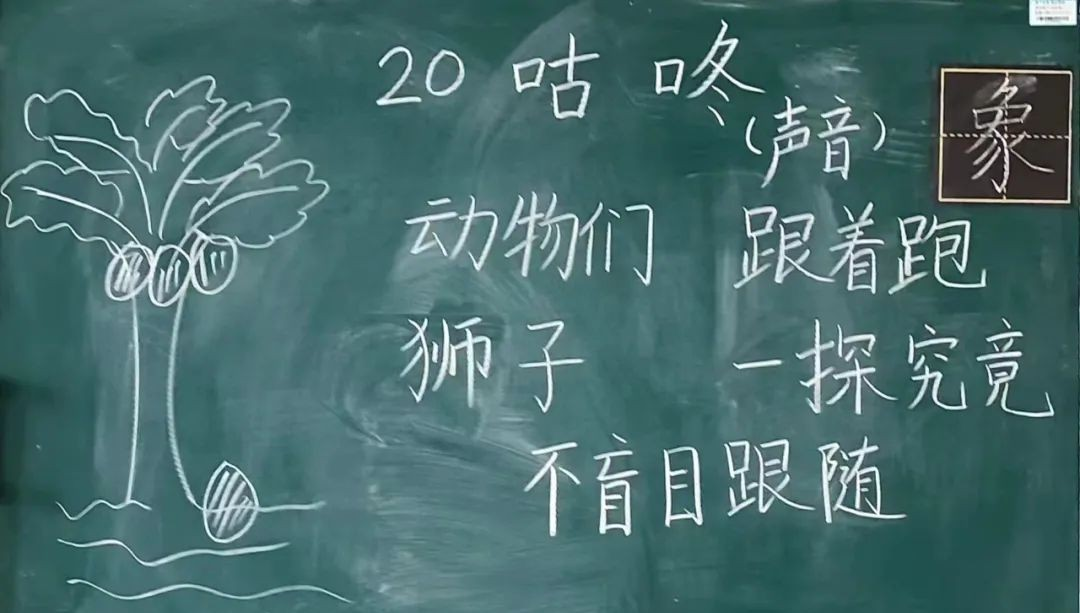 20 咕咚
(声音)
象
动物们 跟着跑
狮子 一探究竟
不盲目跟随